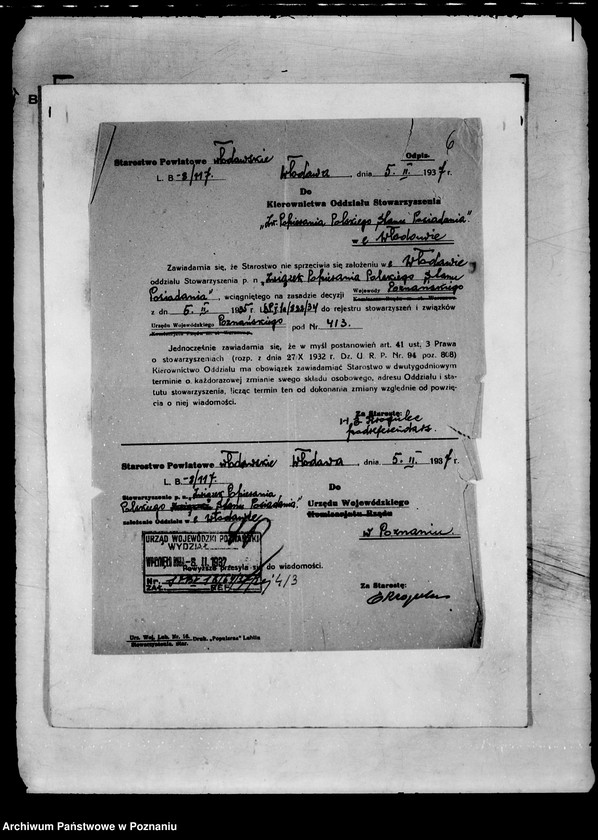 6
B
Odpis.
Starostwo Powiatowe Włodawskie
L. B-8/117. Włodawa, dnia 5. II. 1937 r.
Do
Kierownictwa Oddziału Stowarzyszenia
„Zw. Popierania Polskiego Stanu Posiadania"
we Włodawie
Zawiadamia się, że Starostwo nie sprzeciwia się założeniu we Włodawie
oddziału Stowarzyszenia p. n. „Związek Popierania Polskiego Stanu
Posiadania", wciągniętego na zasadzie decyzji Wojewody Poznańskiego
Komisarza Rządu m. st. Warszawy
z dn 5. II. 1935 r. do rejestru stowarzyszeń i związków
Urzędu Wojewódzkiego Poznańskiego pod Nr. 413.
Komisarjatu Rządu m. st. Warszawy
Jednocześnie zawiadamia się, że w myśl postanowień art. 41 ust, 3 Prawa
o stowarzyszeniach (rozp. z dnia 27/X 1932 r. Dz. U. R. P. Nr. 94 poz. 808)
Kierownictwo Oddziału ma obowiązek zawiadamiać Starostwo w dwutygodniowym
terminie o każdorazowej zmianie swego składu osobowego, adresu Oddziału i sta-
tutu stowarzyszenia, licząc termin ten od dokonania zmiany względnie od powzię-
cia o niej wiadomości.
Za Starostę:
podreferendarz.
Starostwo Powiatowe Włodawskie Włodawa, dnia 5. II. 1937 r.
L. B.-8/117.
Stowarzyszenie p. n. „Związek Popierania
Polskiego Stanu Posiadania"
założenie Oddziału we Włodawie
Do
Urzędu Wojewódzkiego
Komisarjatu Rządu
w Poznaniu.
URZĄD WOJEWÓDZKI POZNAŃSKI
WYDZIAŁ
WPŁYNĘŁO DNIA -8. II. 1937
Powyższe przesyła się do wiadomości.
Nr.
ZAŁ. REF.
413
Za Starostę:
Urz. Woj. Lub. Nr. 16. Druk. „Popularna" Lublin
Stowarzyszenia. Star.
Archiwum Państwowe w Poznaniu